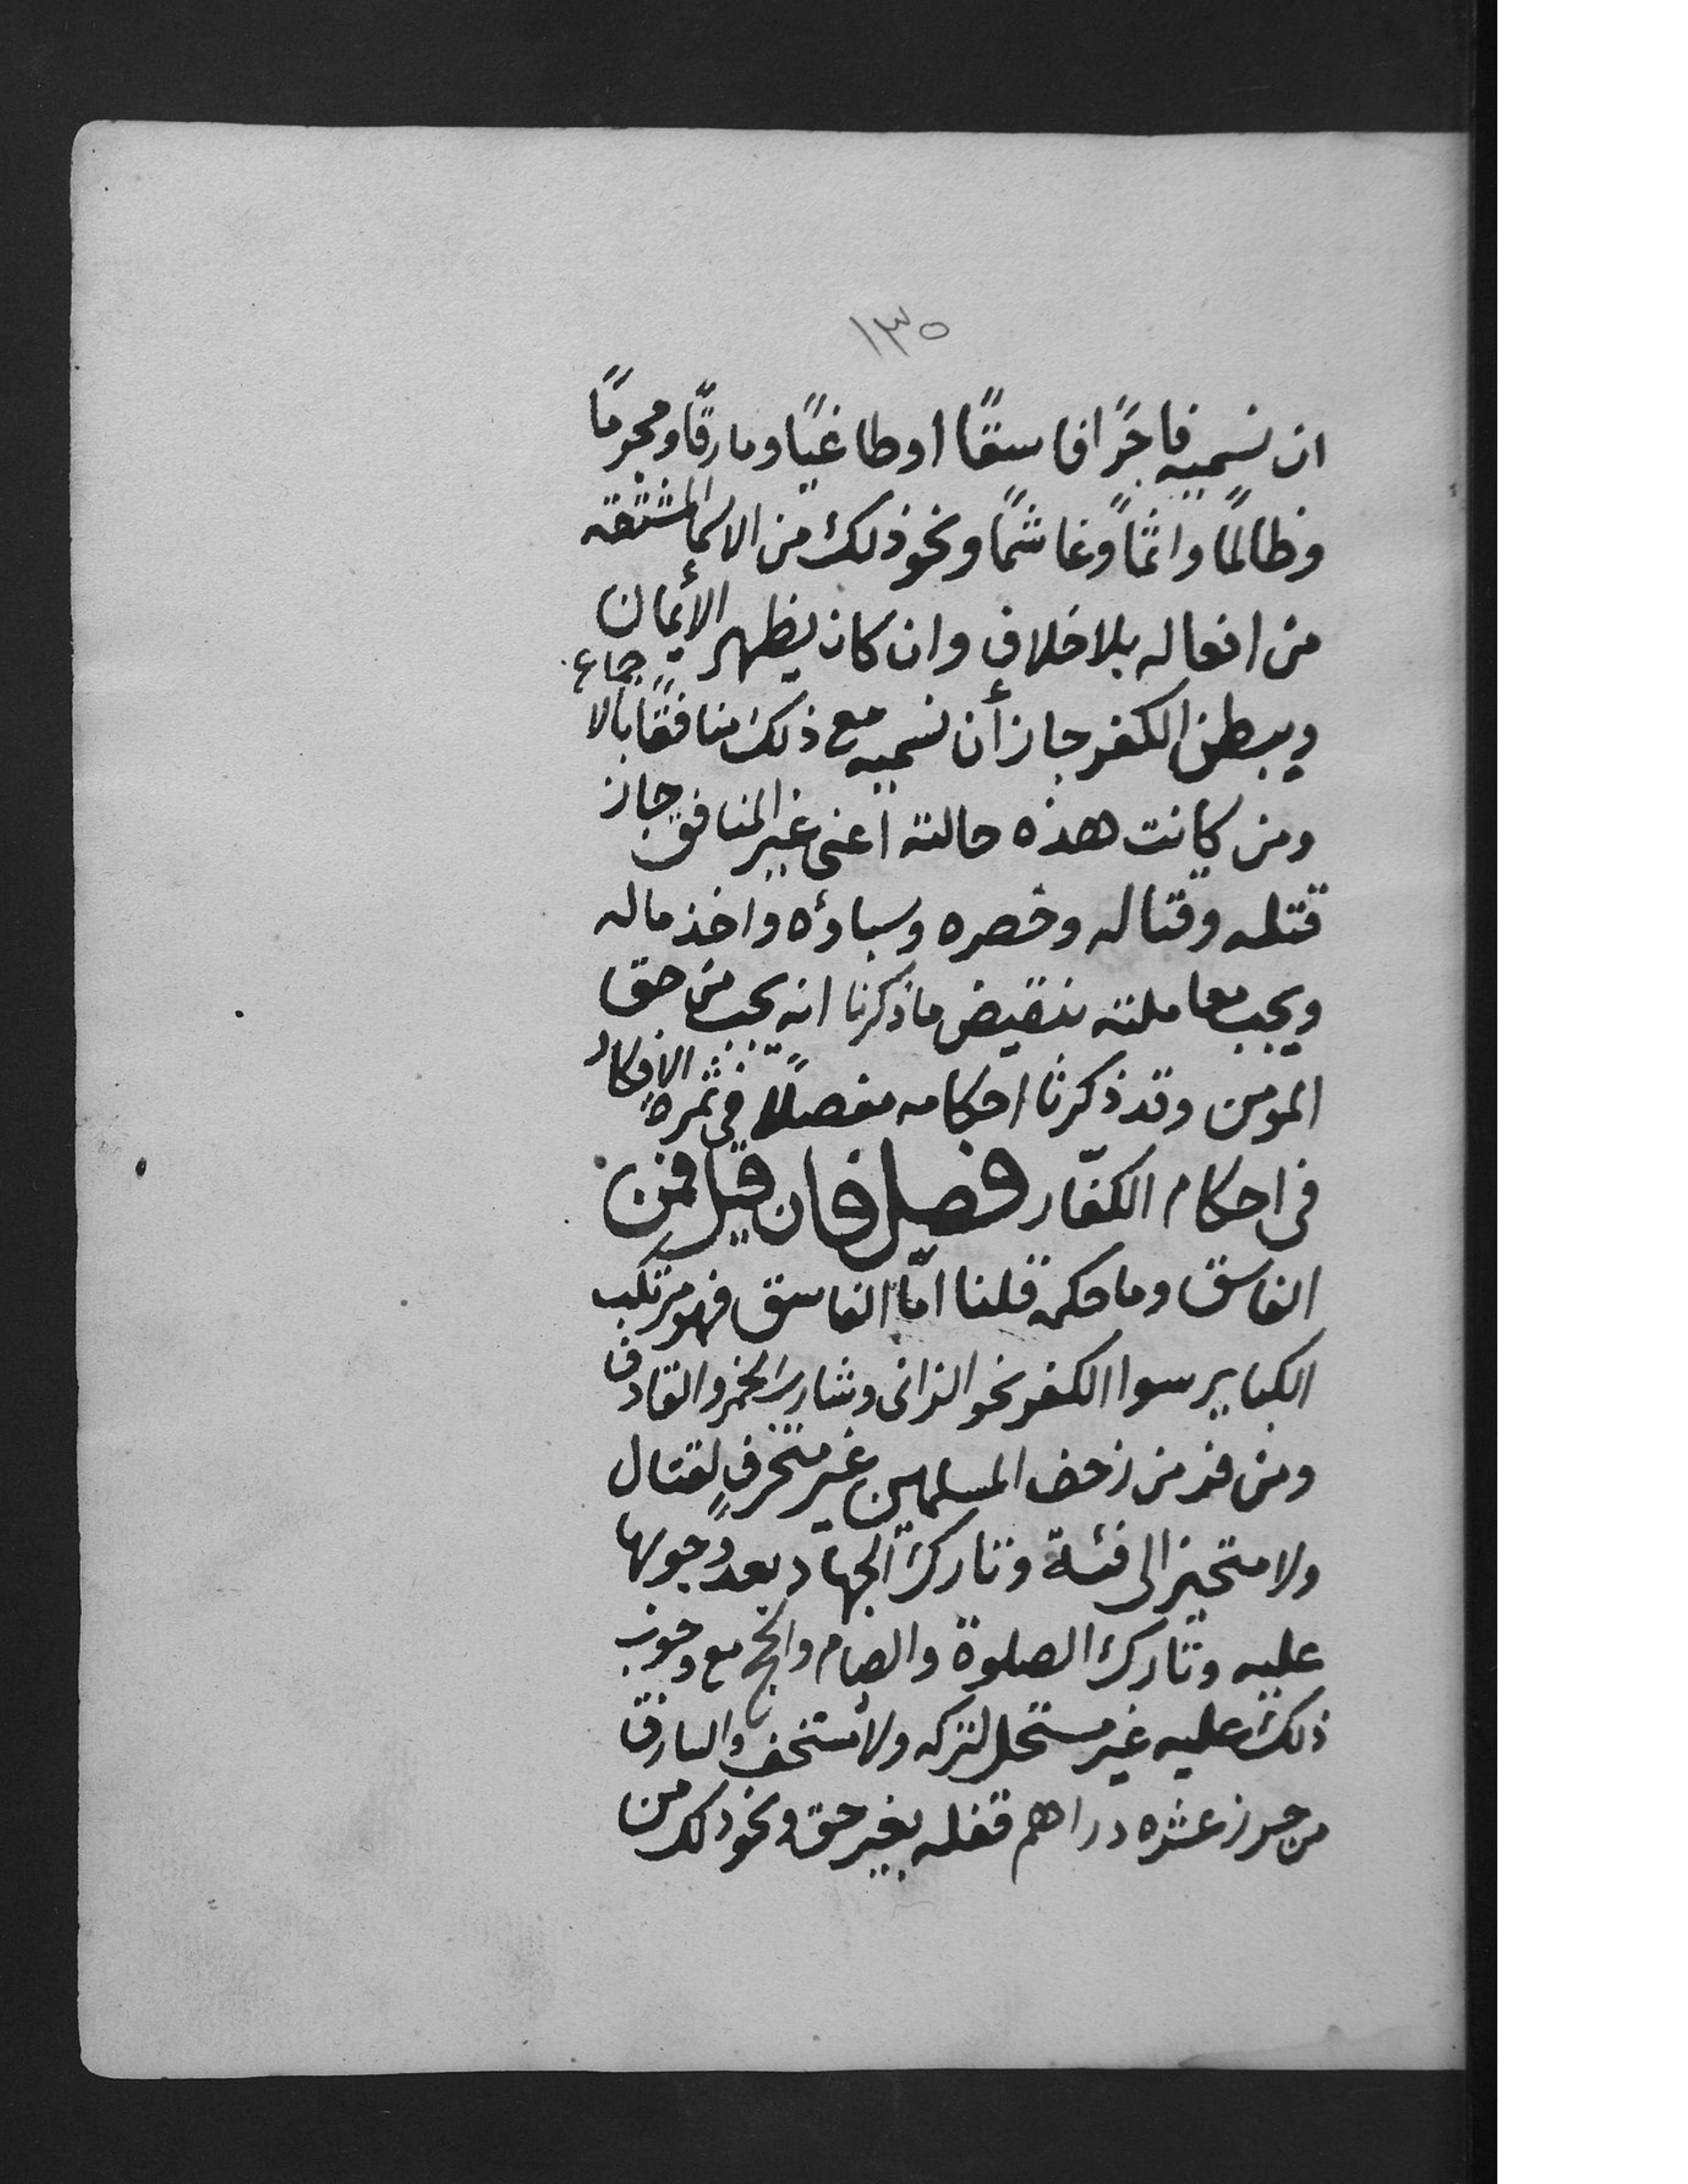 ١٣٥
ان نسميه فاجرًا فاسقًا او طاغيًا ومارقًا ومجرمًا
وظالمًا واثمًا وغاشمًا ونحو ذلك من الاسما المشتقه
من افعاله بلا خلاف وان كان يظهر الأيمان
ويبطن الكفر جاز أن نسميه مع ذلك منافقًا بالاجماع
ومن كانت هذه حالته اعني غير المنافق جاز
قتله وقتاله وحصره وسباؤه واخذ ماله
ويجب معاملته بنقيض ما ذكرنا انه يجب من حق
المومن وقد ذكرنا احكامه مفصلًا في ثمرة الافكار
في احكام الكفّار فصل فان قيل فمن
الفاسق وما حكمه قلنا امّا الفاسق فهو مرتكب
الكباير سوا الكفر نحو الزاني وشارب الخمر والقاذف
ومن فر من زحف المسلمين غير متحرفٍ لقتال
ولا متحيز الى فئة وتارك الجهاد بعد وجوبها
عليه وتارك الصلوة والصيام والحج مع وجوب
ذلك عليه غير مستحل لتركه ولا مستخف والسارق
من حرز عشره دراهم قفله بغير حق ونحو ذلك من